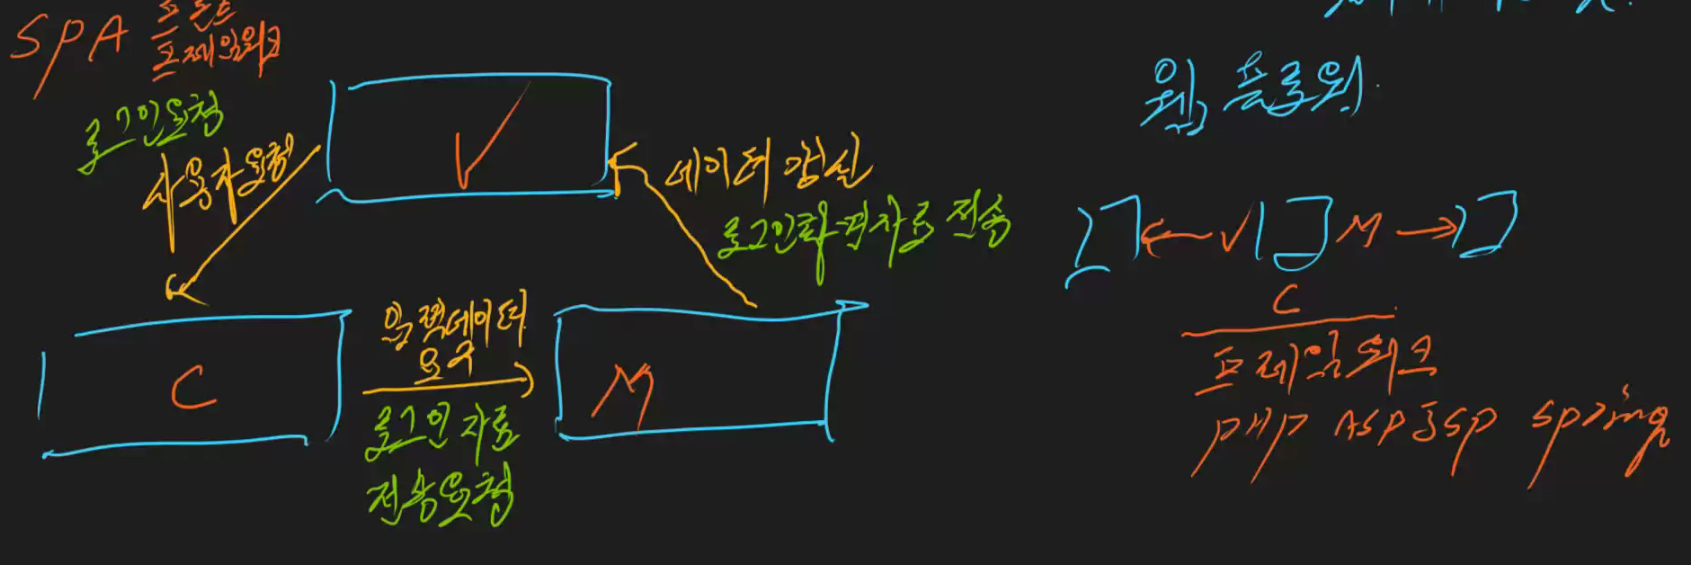 SPA 프론트
프레임워크
로그인요청
사용자요청
V
데이터 갱신
로그인 자료 전송
C
데이터
요구
로그인 자료
전송요청
M
웹
V M
C
프레임워크
PHP ASP JSP Spring